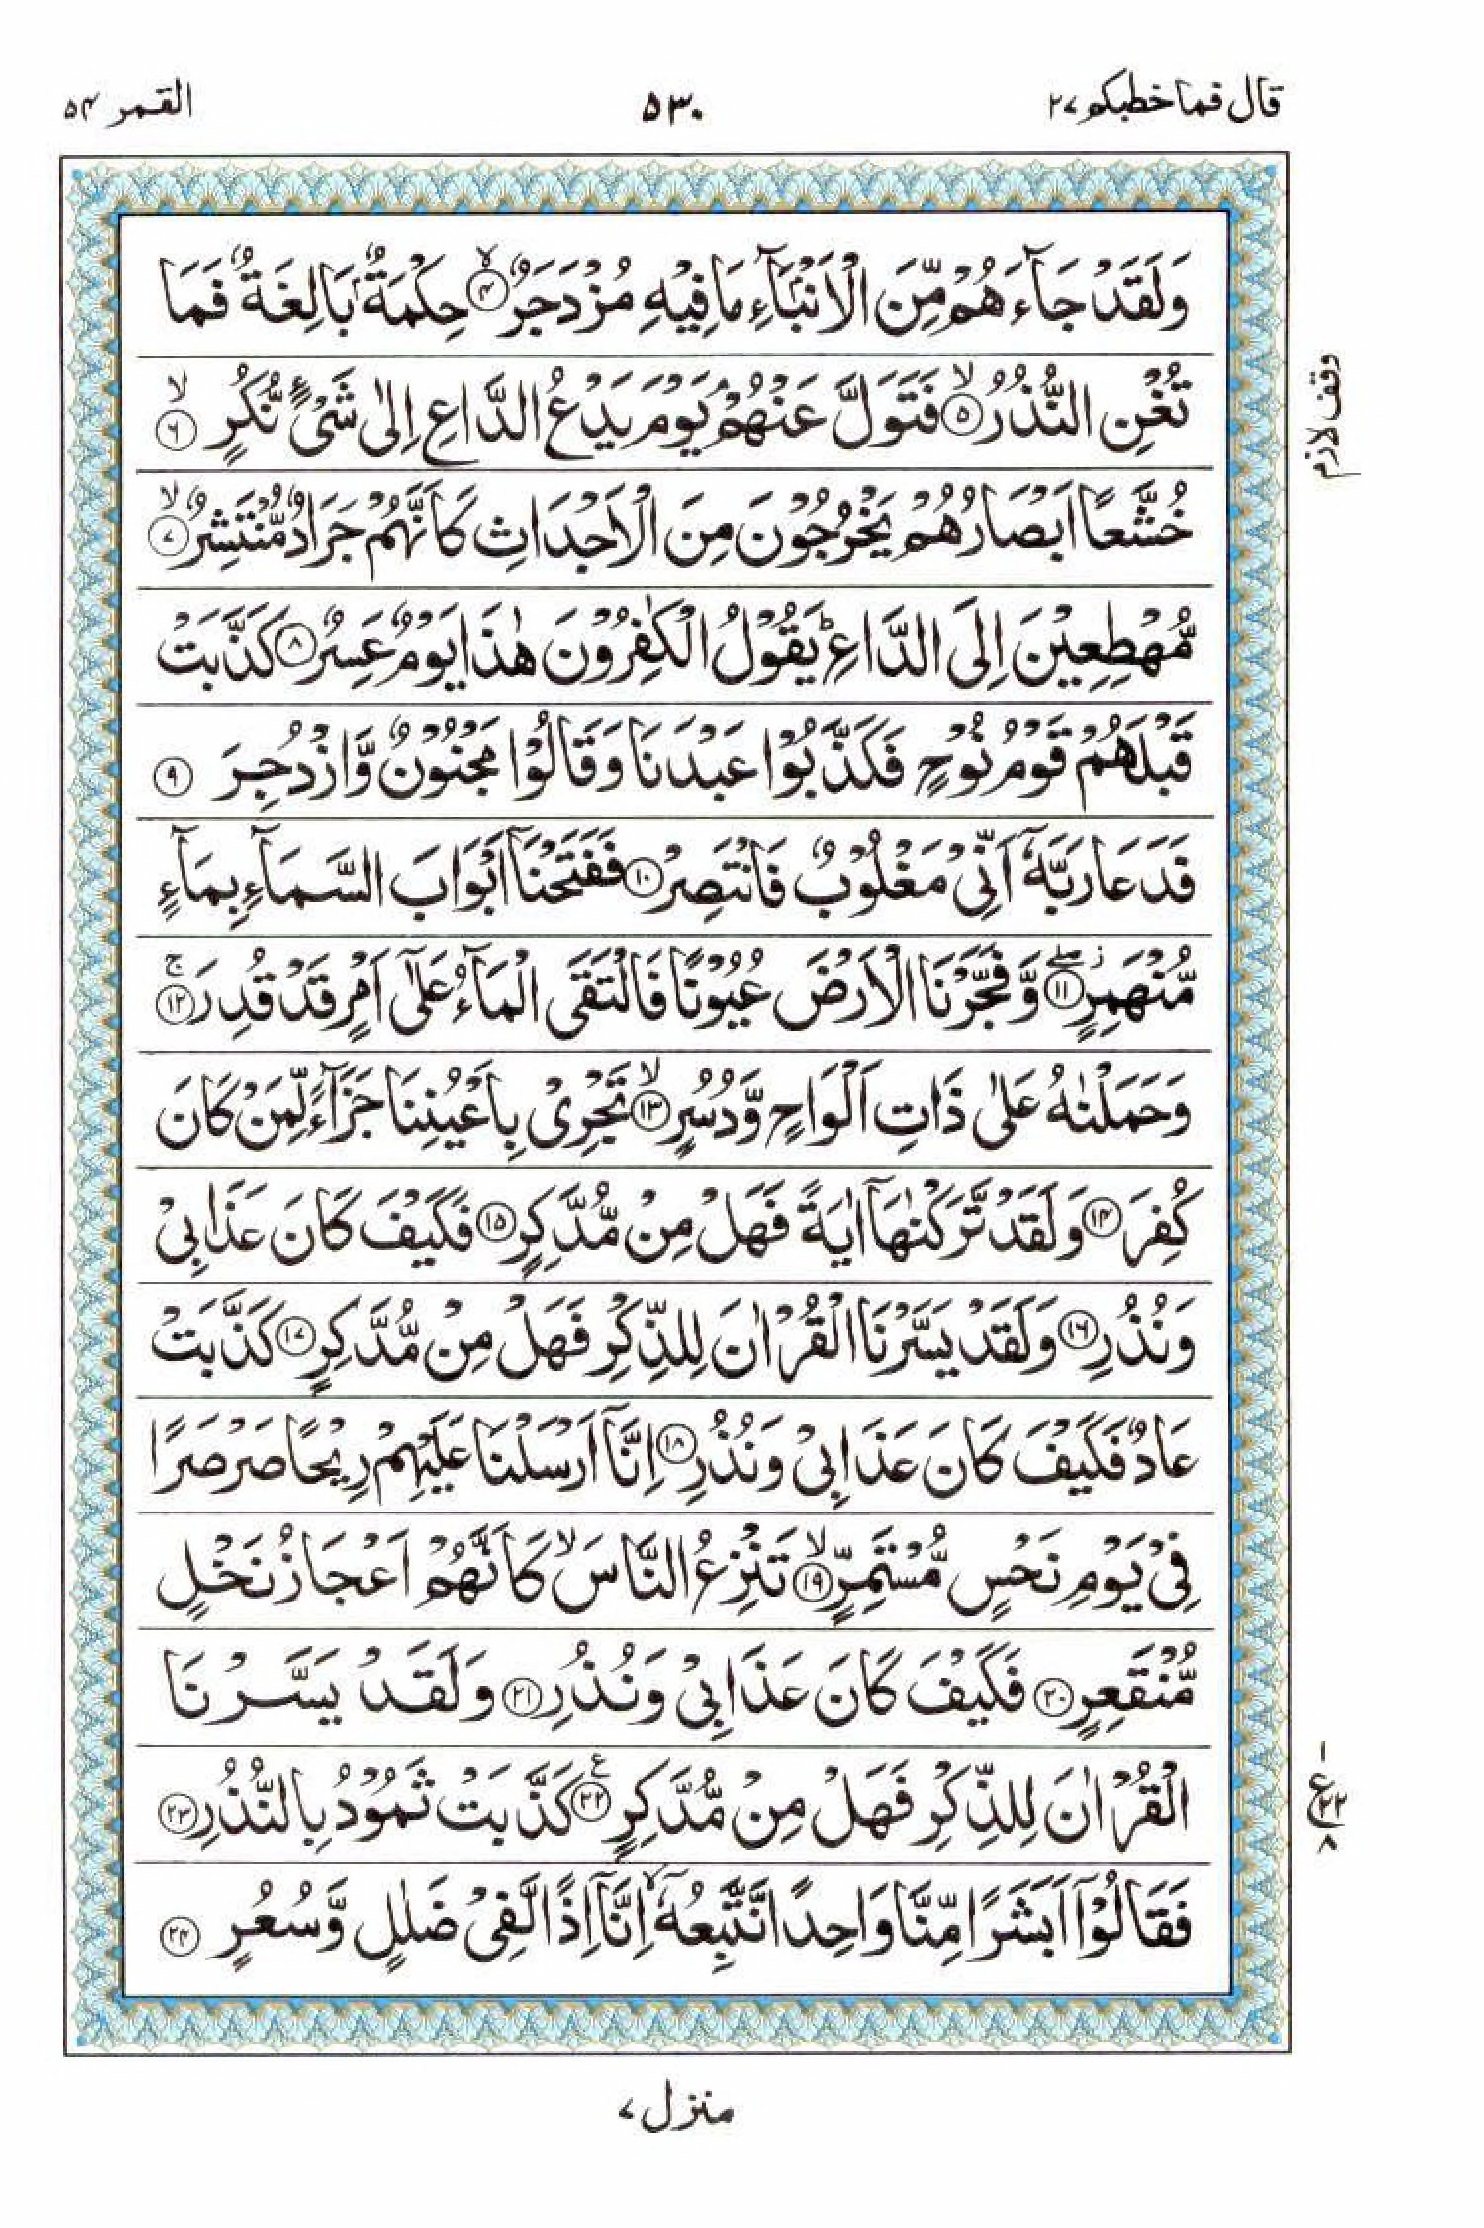 قال فما خطبكم ٢٧
٥٣٠
القمر ٥٤
وَلَقَدْ جَآءَهُمْ مِّنَ الْاَنْۢبَآءِ مَا فِيْهِ مُزْدَجَرٌ ۙ‏﴿۴﴾ حِكْمَةٌۢ بَالِغَةٌ فَمَا
تُغْنِ النُّذُرُ ۙ‏﴿۵﴾ فَتَوَلَّ عَنْهُمْ ۘ يَوْمَ يَدْعُ الدَّاعِ اِلٰى شَىْءٍ نُّكُرٍ ۙ‏﴿۶﴾
وقف لازم
خُشَّعًا اَبْصَارُهُمْ يَخْرُجُوْنَ مِنَ الْاَجْدَاثِ كَاَنَّهُمْ جَرَادٌ مُّنْتَشِرٌ ۙ‏﴿۷﴾
مُّهْطِعِيْنَ اِلَى الدَّاعِ ؕ يَقُوْلُ الْكٰفِرُوْنَ هٰذَا يَوْمٌ عَسِرٌ ﴿۸﴾ كَذَّبَتْ
قَبْلَهُمْ قَوْمُ نُوْحٍ فَكَذَّبُوْا عَبْدَنَا وَقَالُوْا مَجْنُوْنٌ وَّازْدُجِرَ ﴿۹﴾
فَدَعَا رَبَّهٗۤ اَنِّىْ مَغْلُوْبٌ فَانْتَصِرْ ﴿۱۰﴾ فَفَتَحْنَاۤ اَبْوَابَ السَّمَآءِ بِمَآءٍ
مُّنْهَمِرٍ ۖز ﴿۱۱﴾ وَّفَجَّرْنَا الْاَرْضَ عُيُوْنًا فَالْتَقَى الْمَآءُ عَلٰٓى اَمْرٍ قَدْ قُدِرَ ۚ‏﴿۱۲﴾
وَحَمَلْنٰهُ عَلٰى ذَاتِ اَلْوَاحٍ وَّدُسُرٍ ۙ‏﴿۱۳﴾ تَجْرِىْ بِاَعْيُنِنَا جَزَآءً لِّمَنْ كَانَ
كُفِرَ ﴿۱۴﴾ وَلَقَدْ تَّرَكْنٰهَاۤ اٰيَةً فَهَلْ مِنْ مُّدَّكِرٍ ﴿۱۵﴾ فَكَيْفَ كَانَ عَذَابِىْ
وَنُذُرِ ﴿۱۶﴾ وَلَقَدْ يَسَّرْنَا الْقُرْاٰنَ لِلذِّكْرِ فَهَلْ مِنْ مُّدَّكِرٍ ﴿۱۷﴾ كَذَّبَتْ
عَادٌ فَكَيْفَ كَانَ عَذَابِىْ وَنُذُرِ ﴿۱۸﴾ اِنَّاۤ اَرْسَلْنَا عَلَيْهِمْ رِيْحًا صَرْصَرًا
فِىْ يَوْمِ نَحْسٍ مُّسْتَمِرٍّ ۙ‏﴿۱۹﴾ تَنْزِعُ النَّاسَ ۙ كَاَنَّهُمْ اَعْجَازُ نَخْلٍ
مُّنْقَعِرٍ ﴿۲۰﴾ فَكَيْفَ كَانَ عَذَابِىْ وَنُذُرِ ﴿۲۱﴾ وَلَقَدْ يَسَّرْنَا
الْقُرْاٰنَ لِلذِّكْرِ فَهَلْ مِنْ مُّدَّكِرٍ ﴿۲۲﴾ ع كَذَّبَتْ ثَمُوْدُ بِالنُّذُرِ ﴿۲۳﴾
١
ع ٢٢
٨
فَقَالُوْۤا اَبَشَرًا مِّنَّا وَاحِدًا نَّتَّبِعُهٗۤ ۙ اِنَّاۤ اِذًا لَّفِىْ ضَلٰلٍ وَّسُعُرٍ ﴿۲۴﴾
منزل ٧